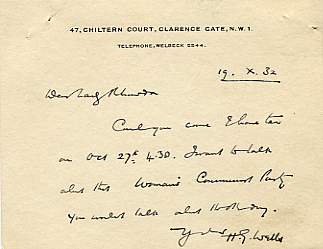 47, CHILTERN COURT, CLARENCE GATE, N.W.1.
TELEPHONE, WELBECK 5544.
19. X. 32
Dear Lady Rhondda
Can you come & have tea
on Oct 27th 4.30. I want to talk
about this Woman's Communist Party
You wouldn't talk about
H.G. Wells